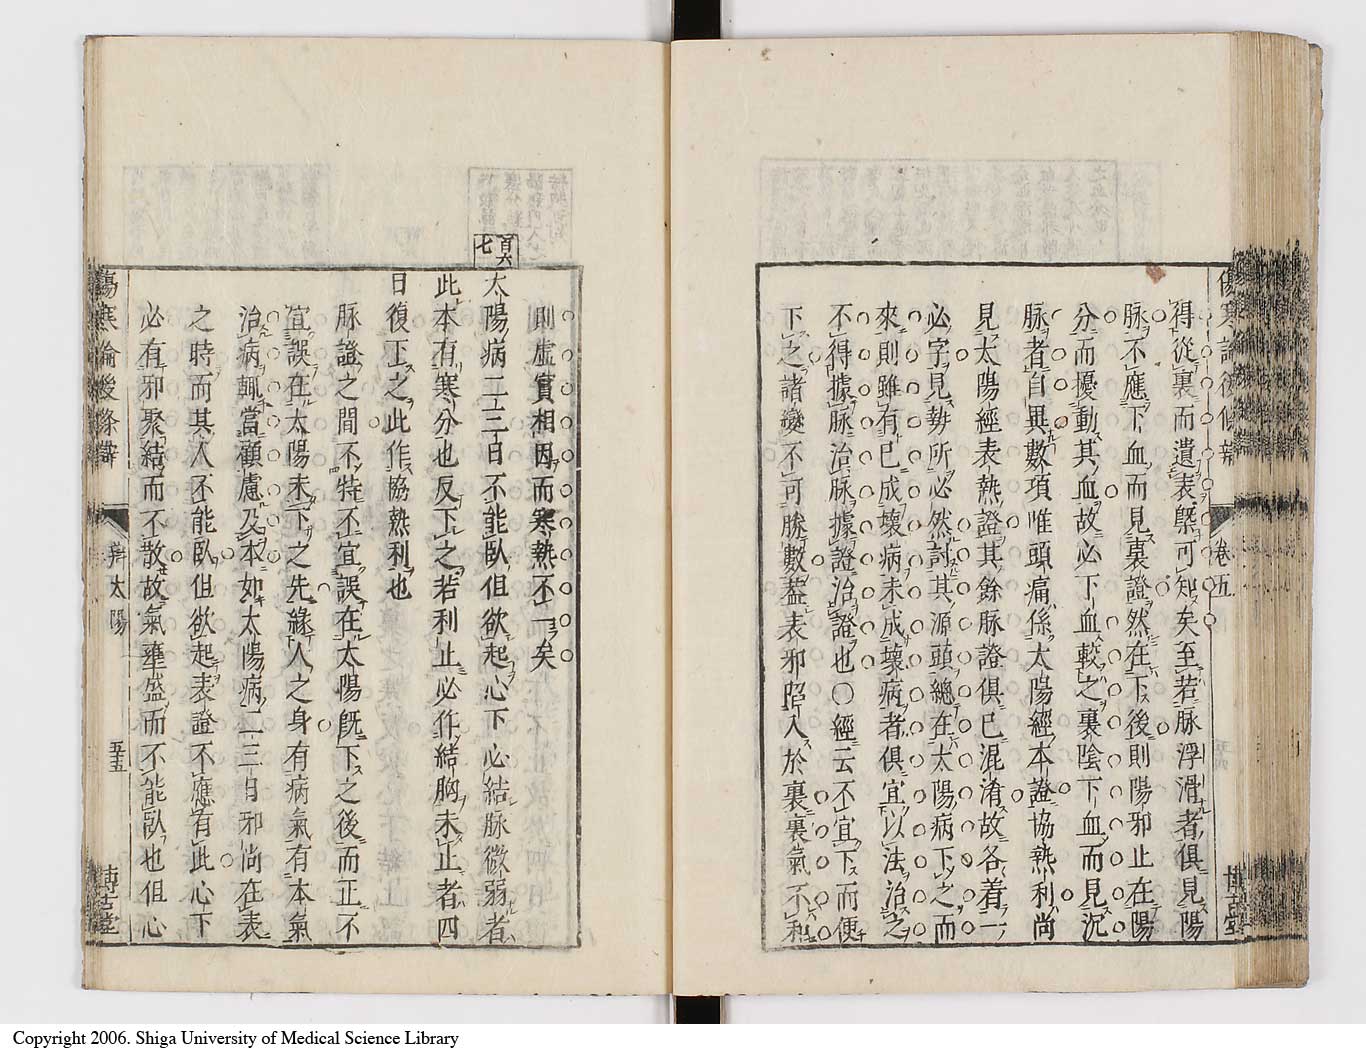 得從裏而遺表槩可知矣至若脉浮滑者俱見陽
脉不應下血而見裏證然在下後則陽邪止在陽
分而擾動其血故必下血較之裏陰下血而見沉
脉者自異數項惟頭痛係太陽經本證協熱利尚
見太陽經表熱證其餘脉證俱已混淆故各着一
必字見勢所必然討其源頭總在太陽病下之而
來則雖有已成壞病未成壞病者俱宜以法治之
不得據脉治脉據證治證也〇經云不宜下而便
下之諸變不可勝數蓋表邪陷入於裏裏氣不和
傷寒論後條辯
卷五
博古堂
則虛實相因而寒熱不一矣
百六七
太陽病二三日不能臥但欲起心下必結脉微弱者
此本有寒分也反下之若利止必作結胸未止者四
日復下之此作協熱利也
脉證之間不特不宜誤在太陽既下之後而正不
宜誤在太陽未下之先緣人之身有病氣有本氣
治病輒當顧慮及本如太陽病二三日邪尚在表
之時而其人不能臥但欲起表證不應有此心下
必有邪聚結而不散故氣壅盛而不能臥也但心
傷寒論後條辯
辯太陽
五五
博古堂
Copyright 2006. Shiga University of Medical Science Library